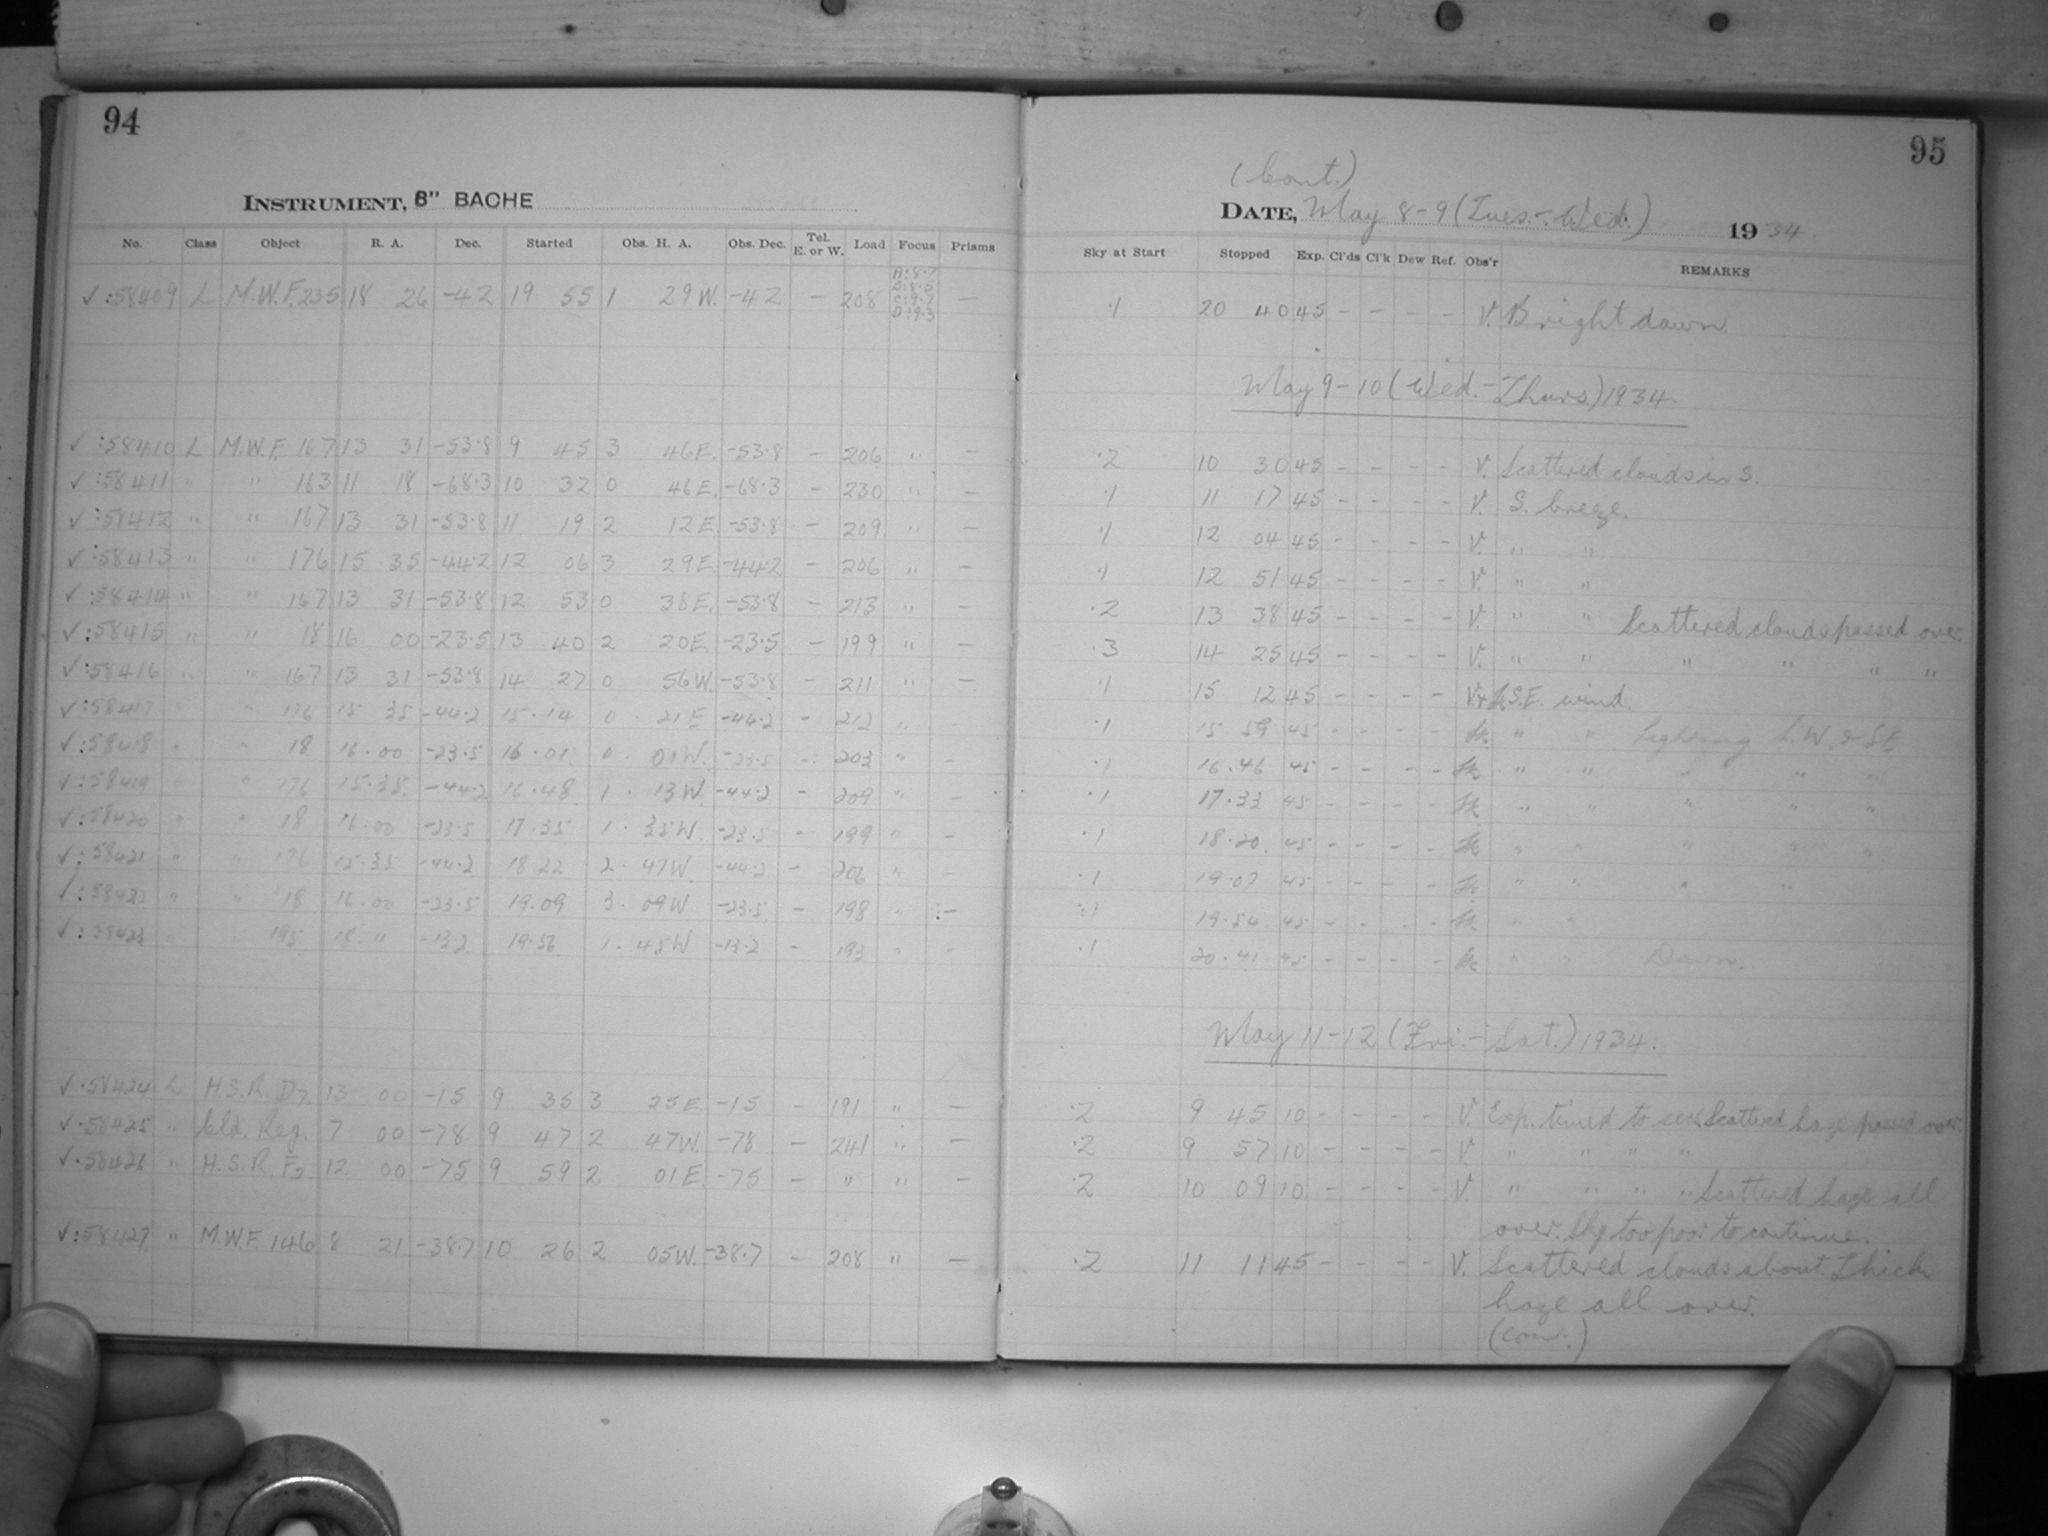 94
INSTRUMENT, 8" BACHE
No. Class Object R. A. Dec. Started Obs. H. A. Obs. Dec. Tel. E. or W. Load Focus Prisms
✓ :58409 L M.W.F. 235 18 26 -42 19 55 1 29 W. -42 - 208 A:8.7 B:8.5 C:9.7 D:9.3 -
✓ :58410 L M.W.F. 167 13 31 -53.8 9 45 3 46 E. -53.8 - 206 " -
✓ :58411 " " 163 11 18 -68.3 10 32 0 46 E. -68.3 - 230 " -
✓ :58412 " " 167 13 31 -53.8 11 19 2 12 E. -53.8 - 209 " -
✓ :58413 " " 176 15 35 -44.2 12 06 3 29 E. -44.2 - 206 " -
✓ :58414 " " 167 13 31 -53.8 12 53 0 38 E. -53.8 - 213 " -
✓ :58415 " " 18 16 00 -23.5 13 40 2 20 E -23.5 - 199 " -
✓ :58416 " " 167 13 31 -53.8 14 27 0 56 W. -53.8 - 211 " -
✓ :58417 " " 176 15 35 -44.2 15.14 0. 21 E -44.2 - 212 " -
✓ :58418 " " 18 16.00 -23.5 16.01 0. 01 W. -23.5 - 203 " -
✓ :58419 " " 176 15.35 -44.2 16.48 1. 13 W. -44.2 - 209 " -
✓ :58420 " " 18 16.00 -23.5 17.35 1. 35 W. -23.5 - 199 " -
✓ :58421 " " 176 15.35 -44.2 18 22 2. 47 W. -44.2 - 206 " -
✓ :58422 " " 18 16.00 -23.5 19.09 3. 09 W -23.5 - 198 " -
✓ :58423 " " 195 18." -13.2 19.56 1. 45 W -13.2 - 193 " "
✓ .58424 L H.S.R. D7. 13 00 -15 9 35 3 25 E. -15 - 191 " -
✓ .58425 " Cld. Reg. 7 00 -78 9 47 2 47 W. -78 - 241 " -
✓ .58426 " H.S.R. F2 12 00 -75 9 59 2 01 E. -75 - " " -
✓ :58427 " M.W.F. 146 8 21 -38.7 10 26 2 05 W. -38.7 - 208 " -
95
(Cont.)
DATE, May 8-9 (Tues.-Wed.) 1934.
Sky at Start Stopped Exp. Cl'ds Cl'k Dew Ref. Obs'r REMARKS
.1 20 40 45 - - - - V. Bright dawn
May 9-10 (Wed.-Thurs.) 1934.
.2 10 30 45 - - - - V. Scattered clouds in S.
.1 11 17 45 - - - - V. S. breeze.
.1 12 04 45 - - - - V. " "
.1 12 51 45 - - - - V. " "
.2 13 38 45 - - - - V. " " Scattered clouds passed over.
.3 14 25 45 - - - - V. " " " " " "
.1 15 12 45 - - - - S.E. wind.
.1 15 59 45 - - - - " " Lightning S.W. & SE
.1 16.46 45 - - - - " " " " "
.1 17.33 45 - - - - " " " " "
.1 18.20. 45 - - - - " " " " "
.1 19.07 45 - - - - " " " "
.1 19.54 45 - - - - " "
.1 20.41 45 - - - - " " Dawn.
May 11-12 (Fri.-Sat.) 1934.
.2 9 45 10 - - - - V. Exp. timed to sec. Scattered haze passed over.
.2 9 57 10 - - - - V. " " " "
.2 10 09 10 - - - - V " " " " Scattered haze all
over. Sky too poor to continue.
.2 11 11 45 - - - - V. Scattered clouds about. Thick
haze all over.
(con.)